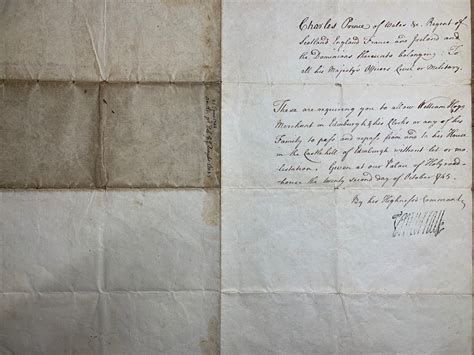 Charles Prince of Wales &c. Regent of
Scotland England France and Ireland and
the Dominions thereunto belonging: To
all his Majesty's Officers Civil or Military.
These are requiring you to allow William Hog
Merchant in Edinburgh & his Clerks or any of his
Family to pass and repass from and to his House
in the Castlehill of Edinburgh without let or mo
lestation. Given at our Palace of Holyrood
house the twenty second day of October 1745.
By his Highness's Command